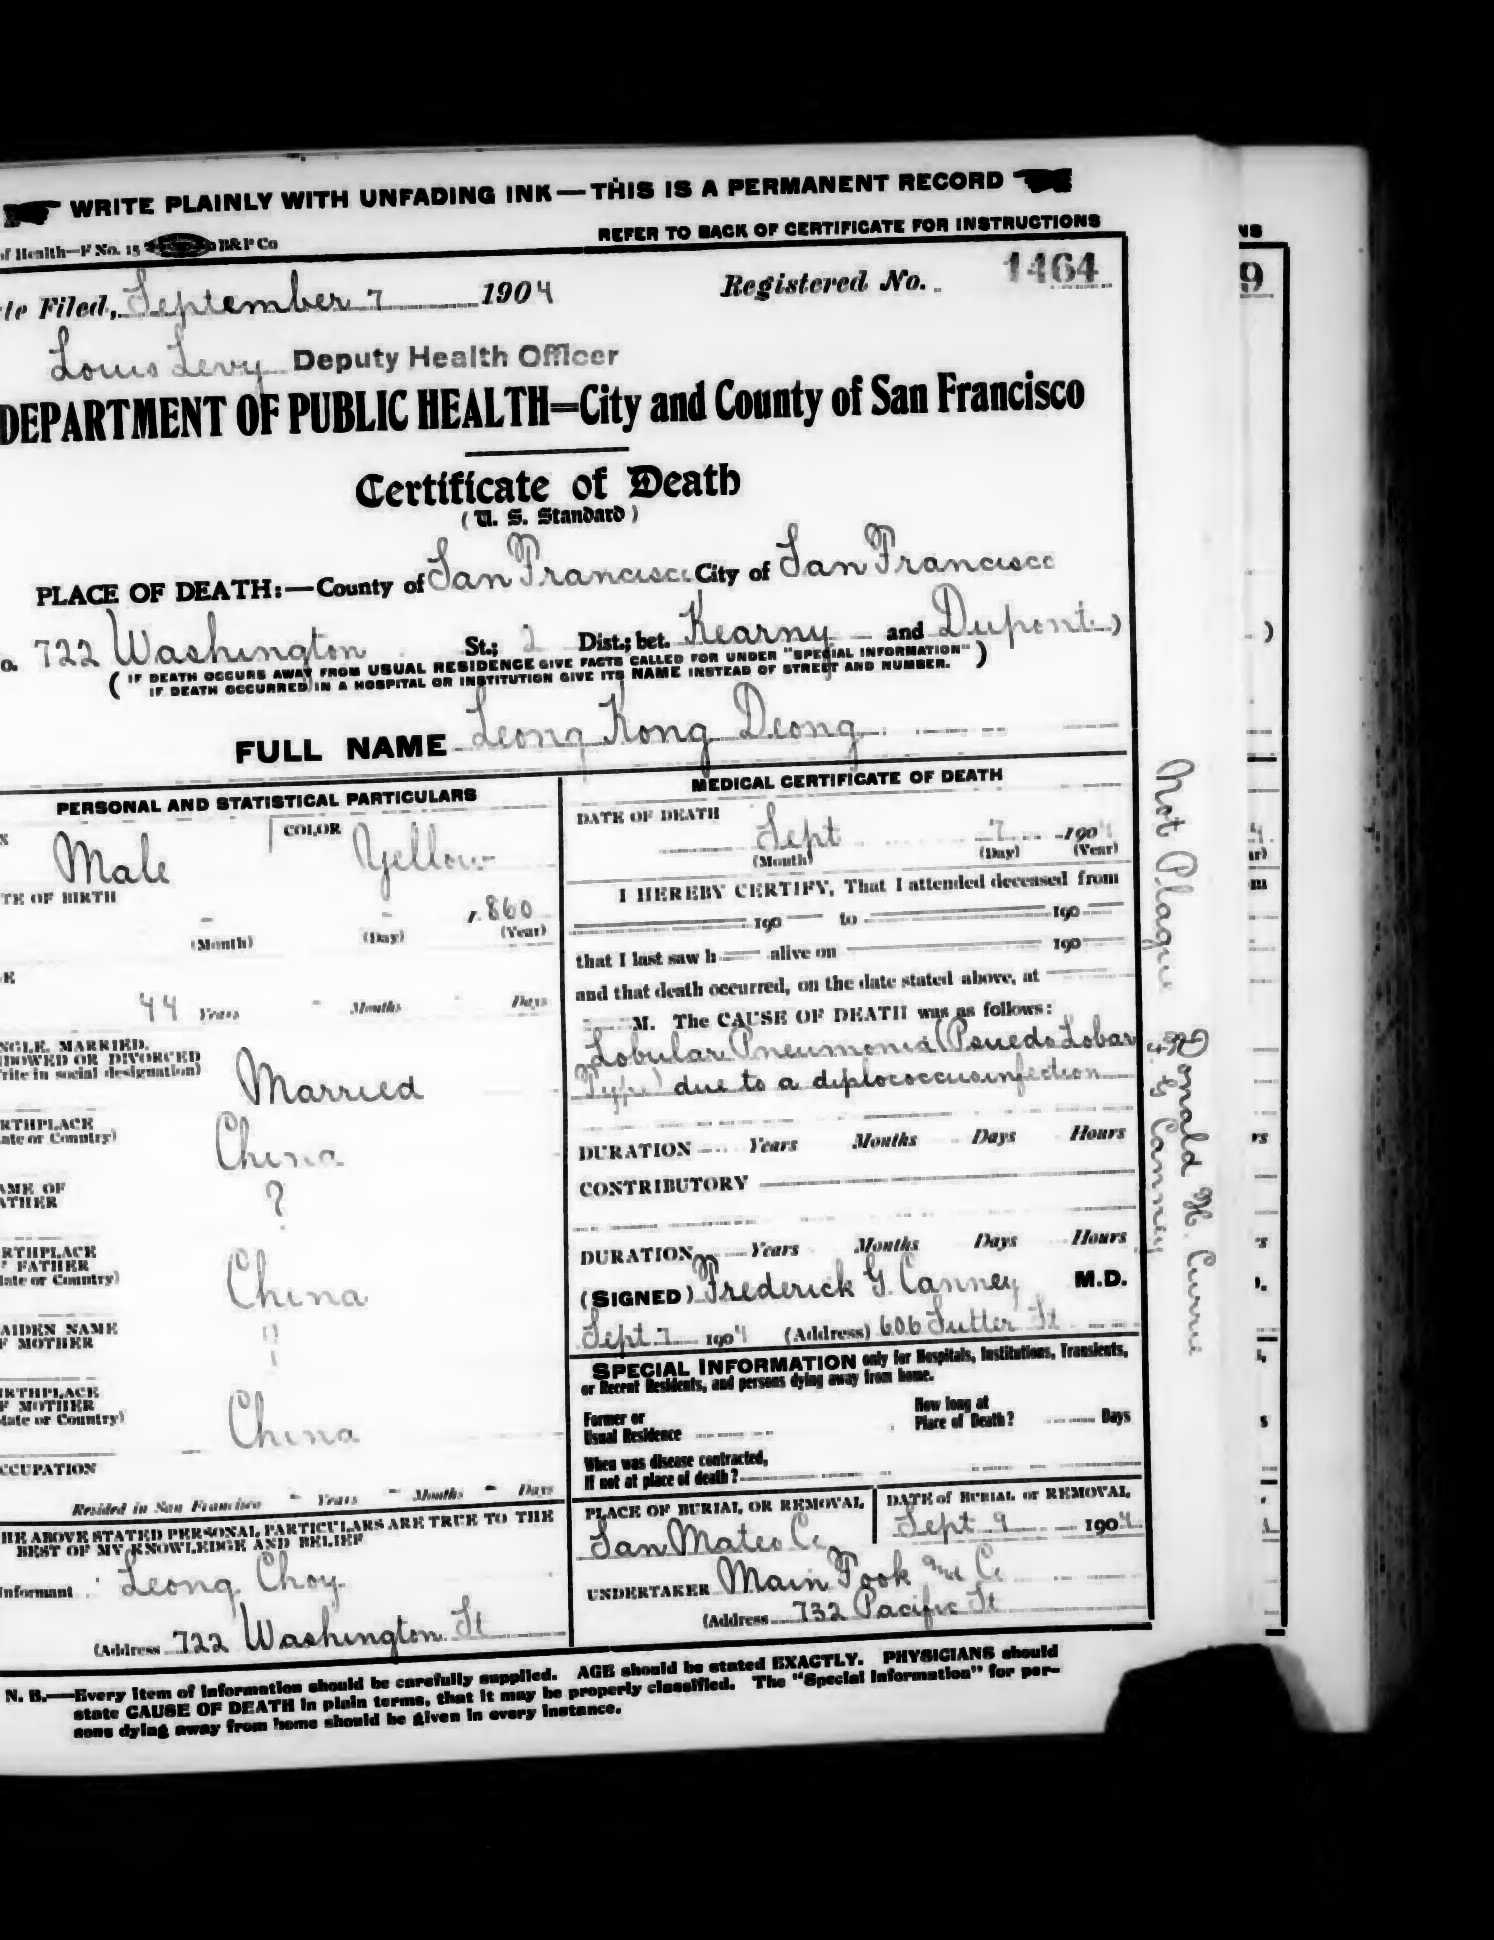 WRITE PLAINLY WITH UNFADING INK—THIS IS A PERMANENT RECORD
of Health—F No. 15 B&P Co
REFER TO BACK OF CERTIFICATE FOR INSTRUCTIONS
te Filed, September 7 1904 Registered No. 1464
Louis Levy Deputy Health Officer
DEPARTMENT OF PUBLIC HEALTH=City and County of San Francisco
Certificate of Death
(U. S. Standard)
PLACE OF DEATH:—County of San Francisco City of San Francisco
o. 722 Washington St.; 2 Dist.; bet. Kearny and Dupont )
( IF DEATH OCCURS AWAY FROM USUAL RESIDENCE GIVE FACTS CALLED FOR UNDER "SPECIAL INFORMATION" )
IF DEATH OCCURRED IN A HOSPITAL OR INSTITUTION GIVE ITS NAME INSTEAD OF STREET AND NUMBER.
FULL NAME Leong Kong Deong
PERSONAL AND STATISTICAL PARTICULARS
X Male COLOR Yellow
TE OF BIRTH
1860
(Month) (Day) (Year)
E
44 Years Months Days
NGLE, MARRIED,
DOWED OR DIVORCED
rite in social designation)
Married
RTHPLACE
ate or Country)
China
AME OF
ATHER
?
RTHPLACE
F FATHER
tate or Country)
China
AIDEN NAME
F MOTHER
?
IRTHPLACE
F MOTHER
tate or Country)
China
CCUPATION
Resided in San Francisco - Years - Months - Days
HE ABOVE STATED PERSONAL PARTICULARS ARE TRUE TO THE
BEST OF MY KNOWLEDGE AND BELIEF
Informant Leong Choy
(Address 722 Washington St
MEDICAL CERTIFICATE OF DEATH
DATE OF DEATH
Sept 7 1904
(Month) (Day) (Year)
I HEREBY CERTIFY, That I attended deceased from
190 to 190
that I last saw h alive on 190
and that death occurred, on the date stated above, at
M. The CAUSE OF DEATH was as follows:
Lobular Pneumonia (Psuedo Lobar
Type) due to a diplococcus infection
DURATION Years Months Days Hours
CONTRIBUTORY
DURATION Years Months Days Hours
(SIGNED) Frederick G. Canney M.D.
Sept 7 1904 (Address) 606 Sutter St
SPECIAL INFORMATION only for Hospitals, Institutions, Transients,
or Recent Residents, and persons dying away from home.
Former or
Usual Residence
How long at
Place of Death? Days
When was disease contracted,
If not at place of death?
PLACE OF BURIAL OR REMOVAL
San Mateo Co
DATE of BURIAL or REMOVAL
Sept 9 1904
UNDERTAKER Main Fook and Co
(Address 732 Pacific St
N. B.—Every item of information should be carefully supplied. AGE should be stated EXACTLY. PHYSICIANS should
state CAUSE OF DEATH in plain terms, that it may be properly classified. The "Special Information" for per-
sons dying away from home should be given in every instance.
Not Plague
Donald H. Currie
F. G Canney
NS
9
)